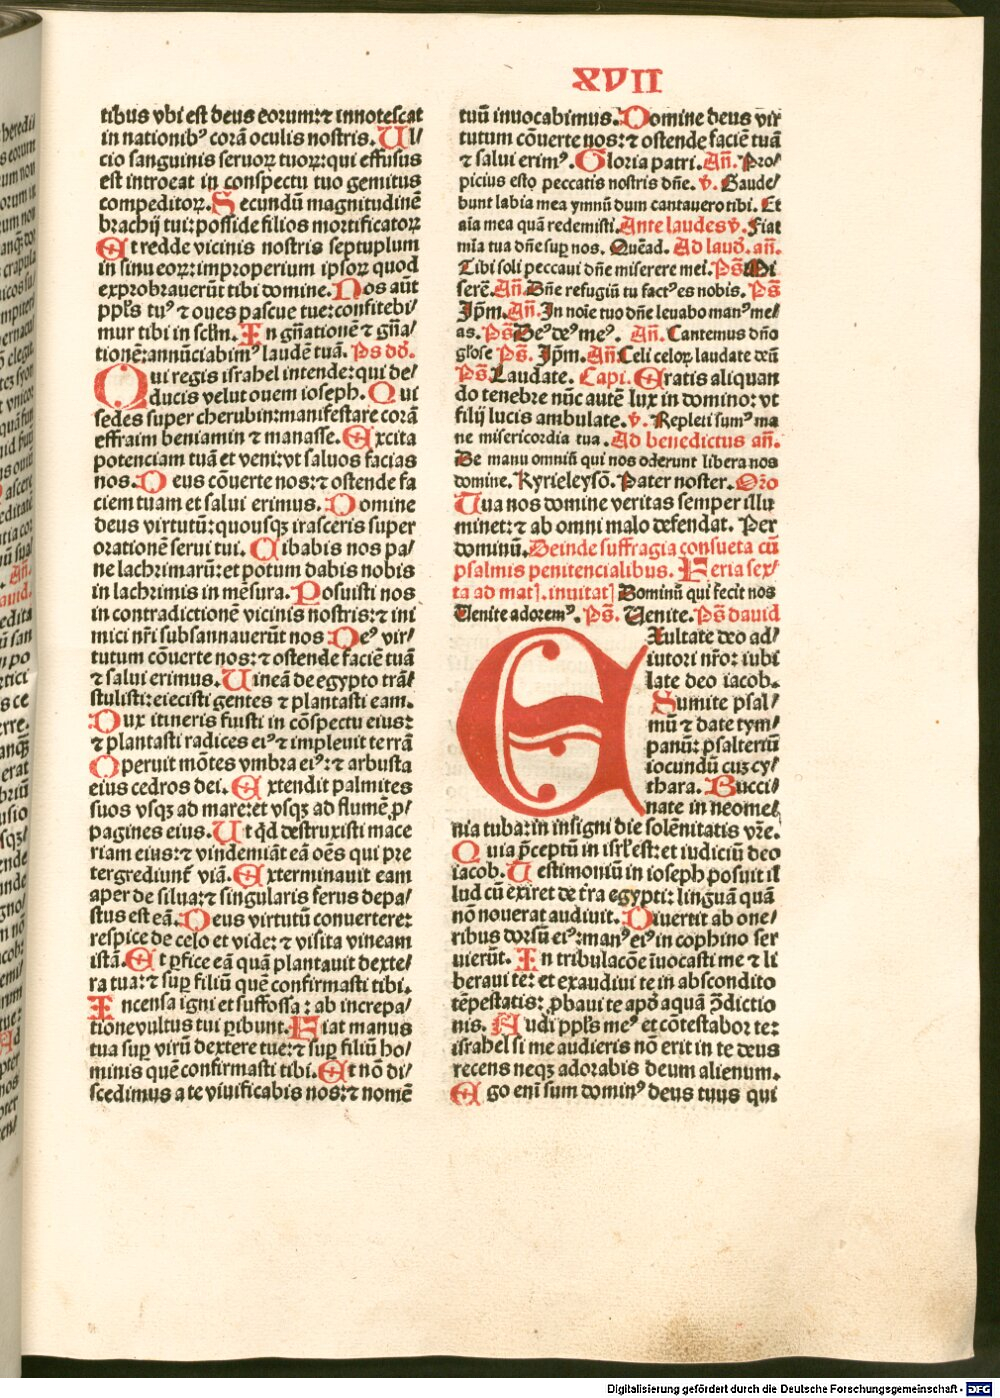 XVII
tibus vbi est deus eorum:⁊ innotescat
in nationibꝰ corā oculis nostris. Vl⸗
cio sanguinis seruoꝝ tuoꝝ:qui effusus
est introeat in conspectu tuo gemitus
compeditoꝝ. Secundū magnitudinē
brachij tui:posside filios mortificatoꝝ
Et redde vicinis nostris septuplum
in sinu eoꝝ:improperium ipsoꝝ quod
exprobrauerūt tibi domine. Nos aūt
ppl̄s tuꝰ ⁊ oues pascue tue:confitebi⸗
mur tibi in scl̄m. In gn̄ationē ⁊ gn̄a⸗
tionē:annūciabimꝰ laudē tuā. Ps dd.
Qui regis israhel intende:qui de⸗
ducis velut ouem ioseph. Qui
sedes super cherubin:manifestare corā
effraim beniamin ⁊ manasse. Excita
potenciam tuā et veni:vt saluos facias
nos. Deus cōuerte nos:⁊ ostende fa
ciem tuam et salui erimus. Domine
deus virtutū:quousqꝫ irasceris super
orationē serui tui. Cibabis nos pa⸗
ne lachrimarū:et potum dabis nobis
in lachrimis in mēsura. Posuisti nos
in contradictionē vicinis nostris:⁊ ini
mici nr̄i subsannauerūt nos Deꝰ vir⸗
tutum cōuerte nos:⁊ ostende faciē tuā
⁊ salui erimus. Vineā de egypto trās⸗
stulisti:eiecisti gentes ⁊ plantasti eam.
Dux itineris fuisti in cōspectu eius:
⁊ plantasti radices eiꝰ ⁊ impleuit terrā
Operuit mōtes vmbra eiꝰ:⁊ arbusta
eius cedros dei. Extendit palmites
suos vsqꝫ ad mare:et vsqꝫ ad flumē ꝓ⸗
pagines eius. Ut qd̄ destruxisti mace
riam eius:⁊ vindemiāt eā oēs qui pre
tergrediunt᷑ viā. Exterminauit eam
aper de silua:⁊ singularis ferus depa⸗
stus est eā. Deus virtutū conuertere:
respice de celo et vide:⁊ visita vineam
istā. Et ꝑfice eā quā plantauit dexte⸗
ra tua:⁊ suꝑ filiū quē confirmasti tibi.
Incensa igni et suffossa: ab increpa⸗
tione vultus tui ꝑibunt. Fiat manus
tua suꝑ virū dextere tue:⁊ suꝑ filiū ho⸗
minis quē confirmasti tibi. Et nō di⸗
scedimus a te viuificabis nos:⁊ nomē
tuū inuocabimus. Domine deus vir
tutum cōuerte nos:⁊ ostende faciē tuā
⁊ salui erimꝰ. Gloria patri. Añ. Pro⸗
picius esto peccatis nostris dn̄e. v̄. Gaude⸗
bunt labia mea ymnū dum cantauero tibi. Et
aīa mea quā redemisti. Ante laudes v̄. Fiat
mīa tua dn̄e suꝑ nos. Quēad. Ad laud. añ.
Tibi soli peccaui dn̄e miserere mei. Ps̄. Mi
serē. Añ. Dn̄e refugiū tu factꝰ es nobis. Ps̄
Ip̄m. Añ. In noīe tuo dn̄e leuabo manꝰ me⸗
as. Ps̄ Deꝰ deꝰ meꝰ. Añ. Cantemus dn̄o
gl̄ose Ps̄. Ip̄m. Añ. Celi celoꝝ laudate deū
Ps̄. Laudate. Capi. Eratis aliquan
do tenebre nūc autē lux in domino: vt
filij lucis ambulate. v̄. Repleti sumꝰ ma
ne misericordia tua. Ad benedictus añ.
De manu omniū qui nos oderunt libera nos
domine. Kyrieleysō. Pater noster. Or̄o
Tua nos domine veritas semper illu
minet:⁊ ab omni malo defendat. Per
dominū. Deinde suffragia consueta cū
psalmis penitencialibus. Feria sex⸗
ta ad mat]. inuitat] Dominū qui fecit nos
Uenite adoremꝰ. Ps̄. Uenite. Ps̄ dauid
Exultate deo ad⸗
iutori nr̄o: iubi
late deo iacob.
Sumite psal⸗
mū ⁊ date tym⸗
panū: psalteriū
iocundū cuꝫ cy⸗
thara. Bucci⸗
nate in neome⸗
nia tuba:in insigni die solēnitatis vr̄e.
Quia p̄ceptū in isrl̄ est:et iudiciū deo
iacob. Testimoniū in ioseph posuit il
lud cū exiret de t̄ra egypti: linguā quā
nō nouerat audiuit. Diuertit ab one⸗
ribus dorsū eiꝰ:manꝰ eiꝰ in cophino ser
uierūt. In tribulacōe īuocasti me ⁊ li
beraui te: et exaudiui te in abscondito
tēpestatis: ꝓbaui te apd̄ aquā ꝯdictio
nis. Audi ppl̄s meꝰ et cōtestabor te:
israhel si me audieris nō erit in te deus
recens neqꝫ adorabis deum alienum.
Ego enī sum dominꝰ deus tuus qui
Digitalisierung gefördert durch die Deutsche Forschungsgemeinschaft - DFG